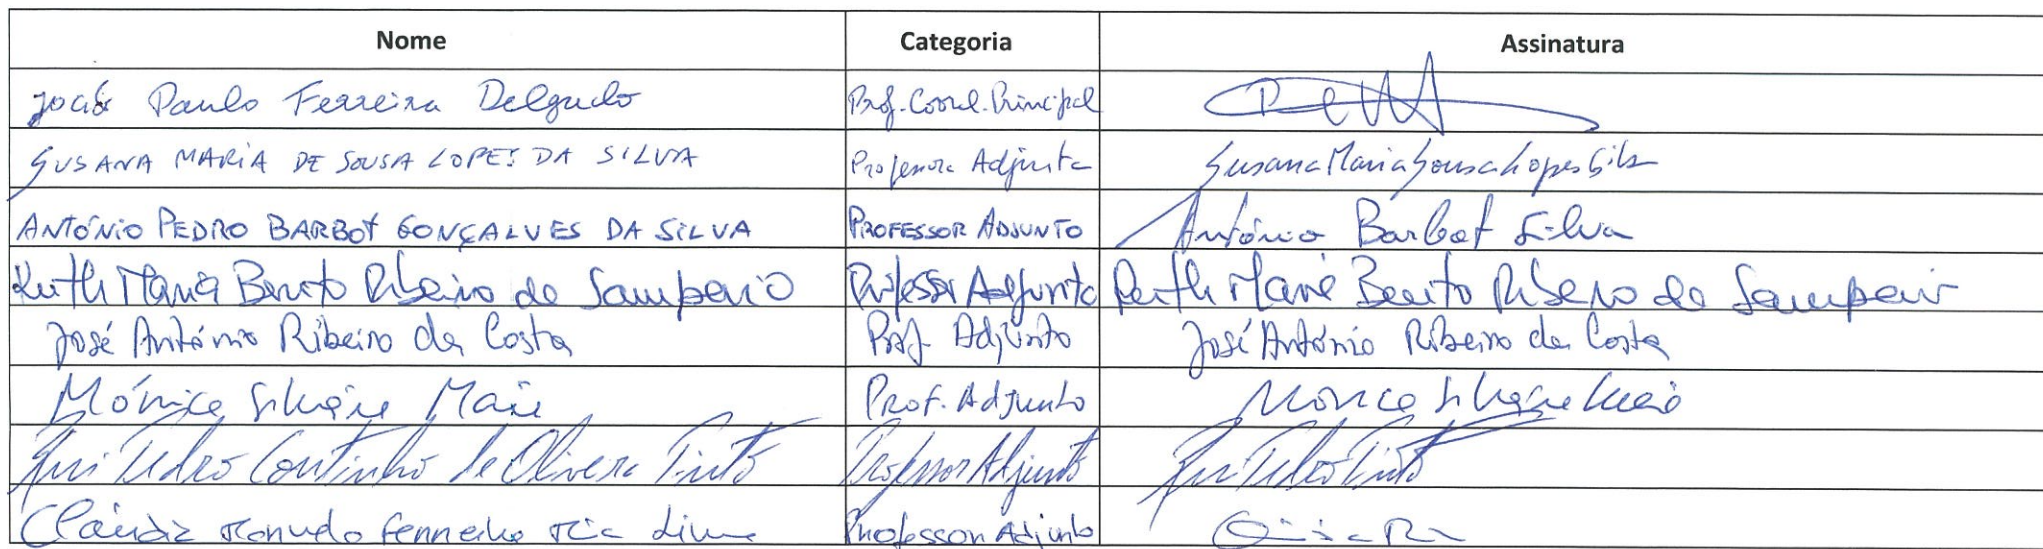 Nome Categoria Assinatura
João Paulo Ferreira Delgado Prof. Coord. Principal
SUSANA MARIA DE SOUSA LOPES DA SILVA Professora Adjunta Susana Maria Sousa Lopes Silva
ANTÓNIO PEDRO BARBOT GONÇALVES DA SILVA PROFESSOR ADJUNTO António Barbot Silva
Ruth Maria Bento Ribeiro de Sampaio Professor Adjunto Ruth Maria Bento Ribeiro de Sampaio
José António Ribeiro da Costa Prof. Adjunto José António Ribeiro da Costa
Mónica Silveira Maia Prof. Adjunto Mónica Silveira Maia
Rui Pedro Coutinho de Oliveira Pinto Professor Adjunto Rui Pedro Pinto
Cláudia Professor Adjunto